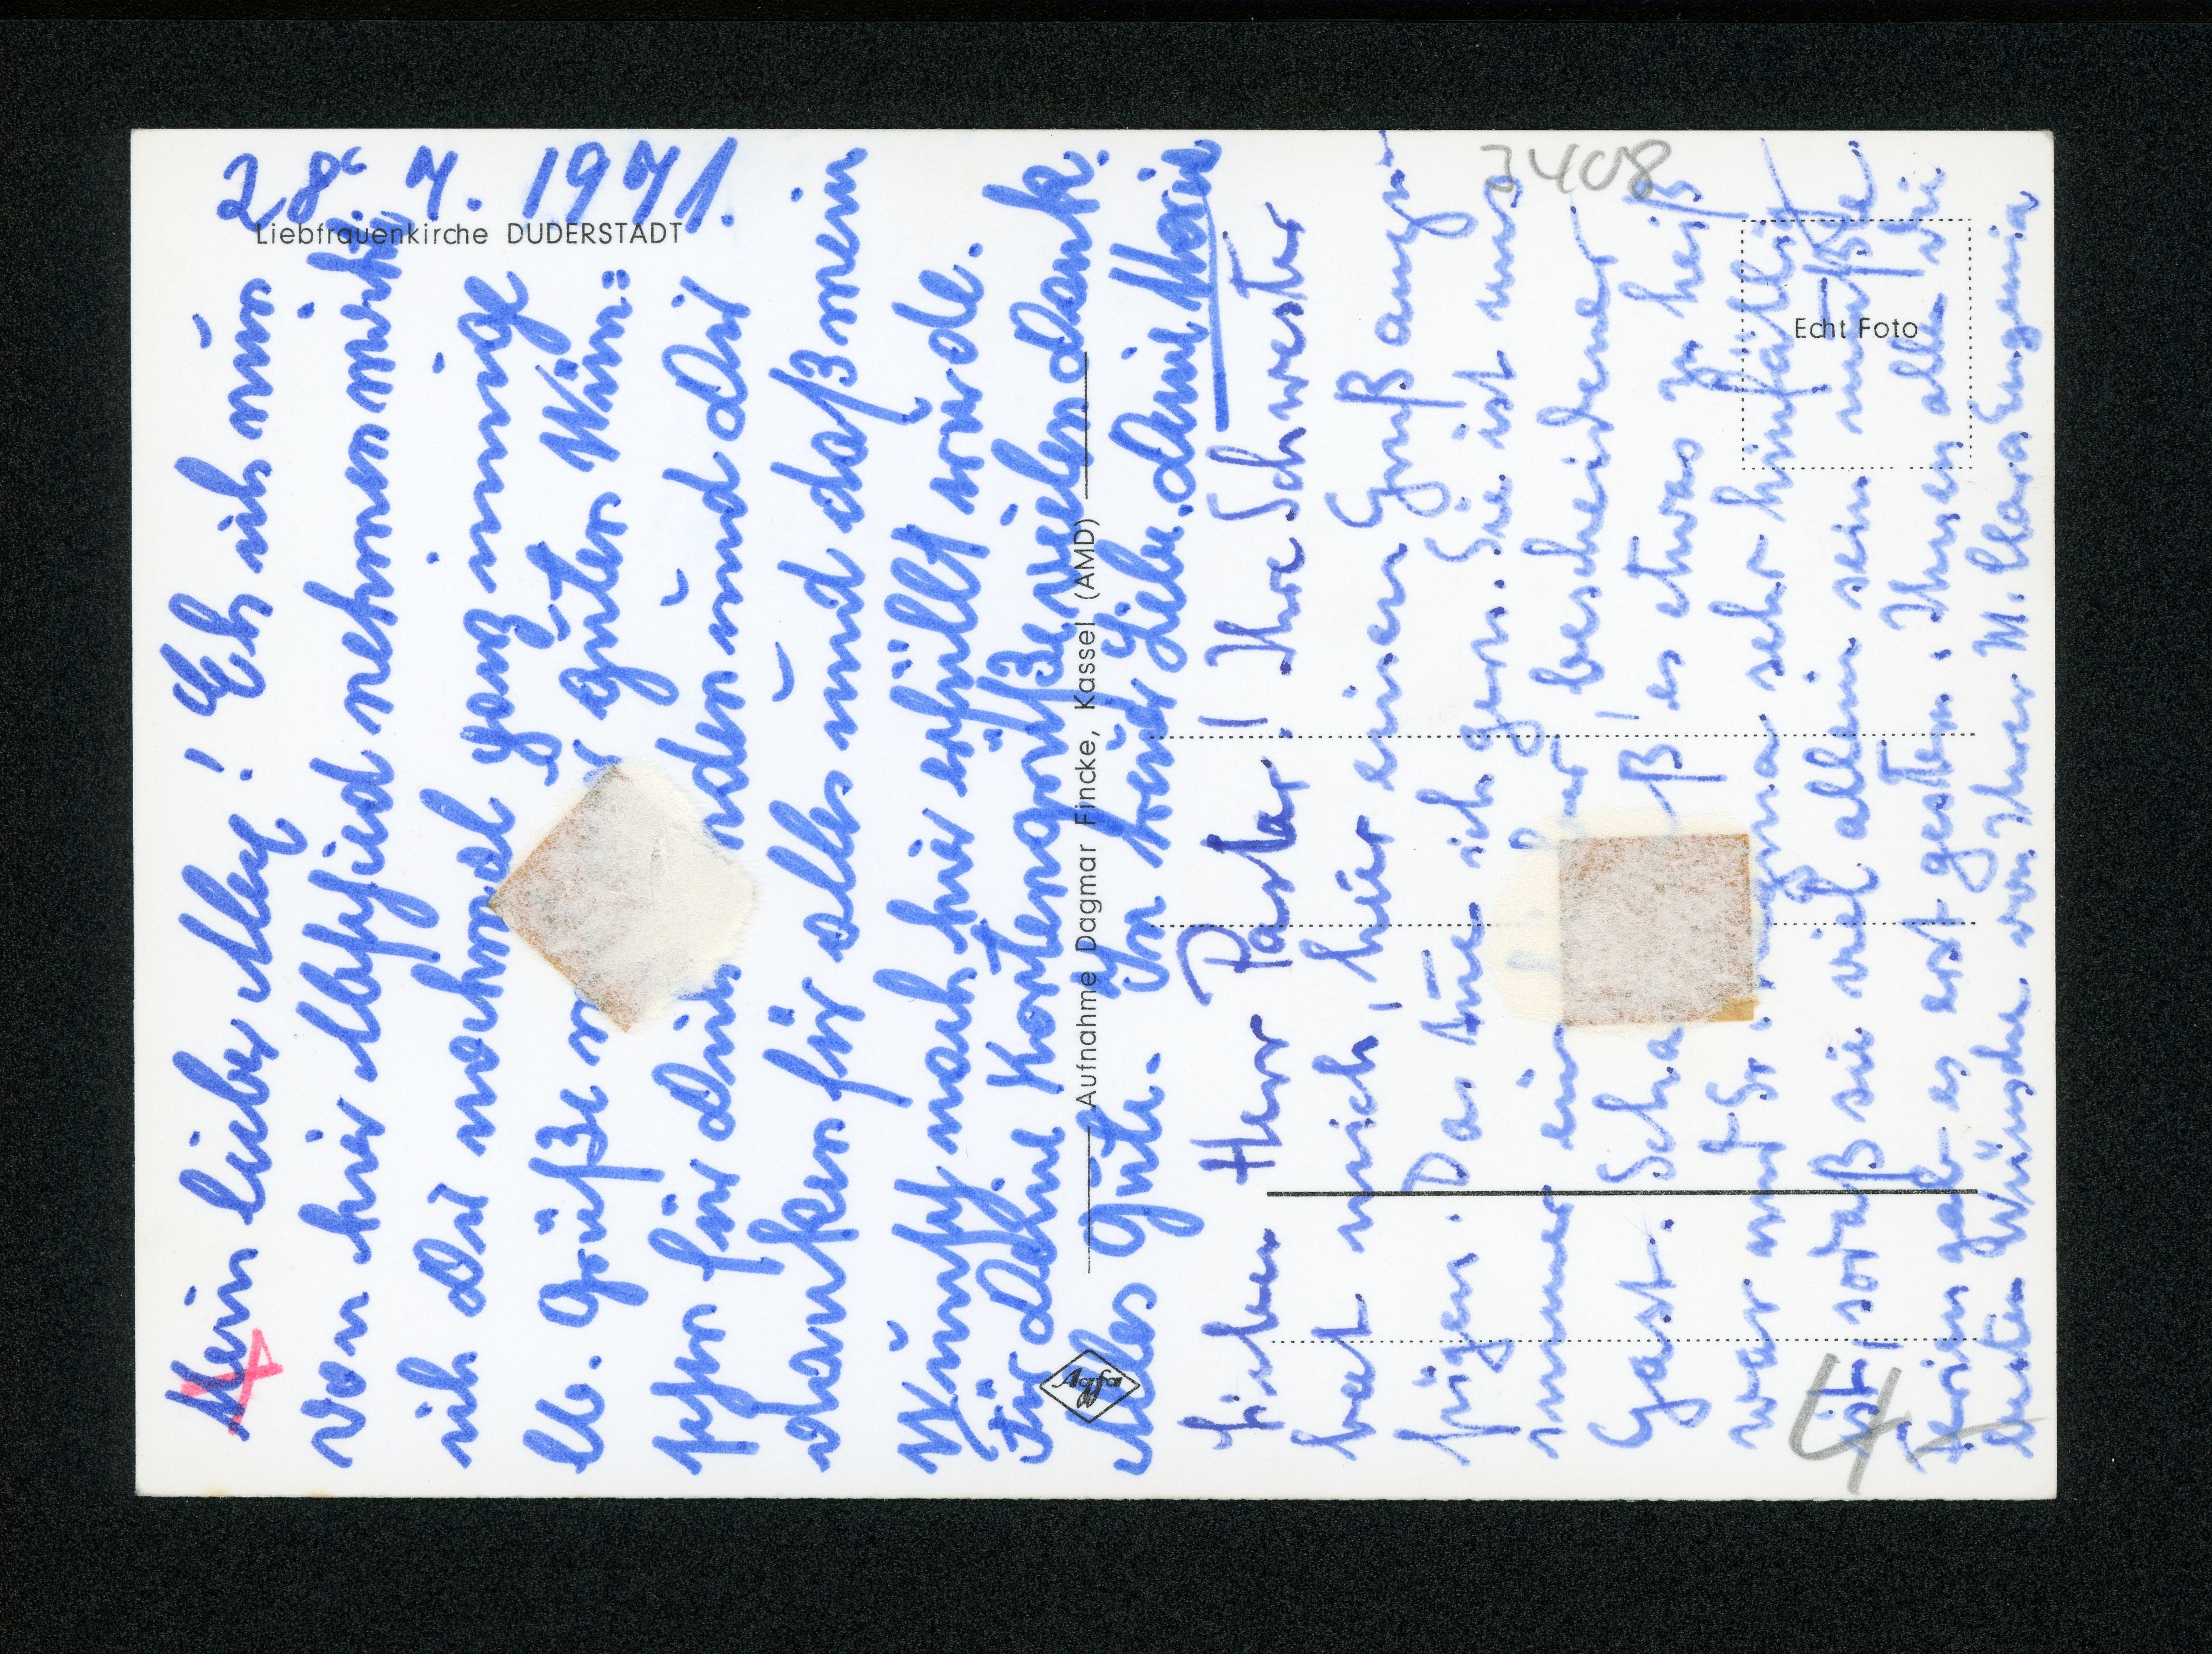 28. 7. 1971.
Mein lieber Aley! Eh ich nun
von hier Abschied nehmen möchte
ich Dir nochmal ganz innige
lb. Grüße guten Wün=
schen für Dich und Dir
danken für alles und daß mein
Wunsch nach hier erfüllt wurde.
Für Deine Kartengrüße vielen Dank.
Alles Gute. In treuer Liebe. Deine Maria
Lieber Herr Pastor! Ihre Schwester
bat mich, hier einen Gruß anzu-
fügen. Das tue ich gern. Sie ist uns
immer ein bescheidener
Gast. Scha ß es etwas zu heiß
war und Sr. sehr hinfällig
ist, sodaß sie viel allein sein mußte.
Ferien gab es erst gestern. Ihnen alle die
besten Wünsche von Ihrer M. Clara Eugenia
Liebfrauenkirche DUDERSTADT
Aufnahme Dagmar Fincke, Kassel (AMD)
Agfa
Echt Foto
3408
4